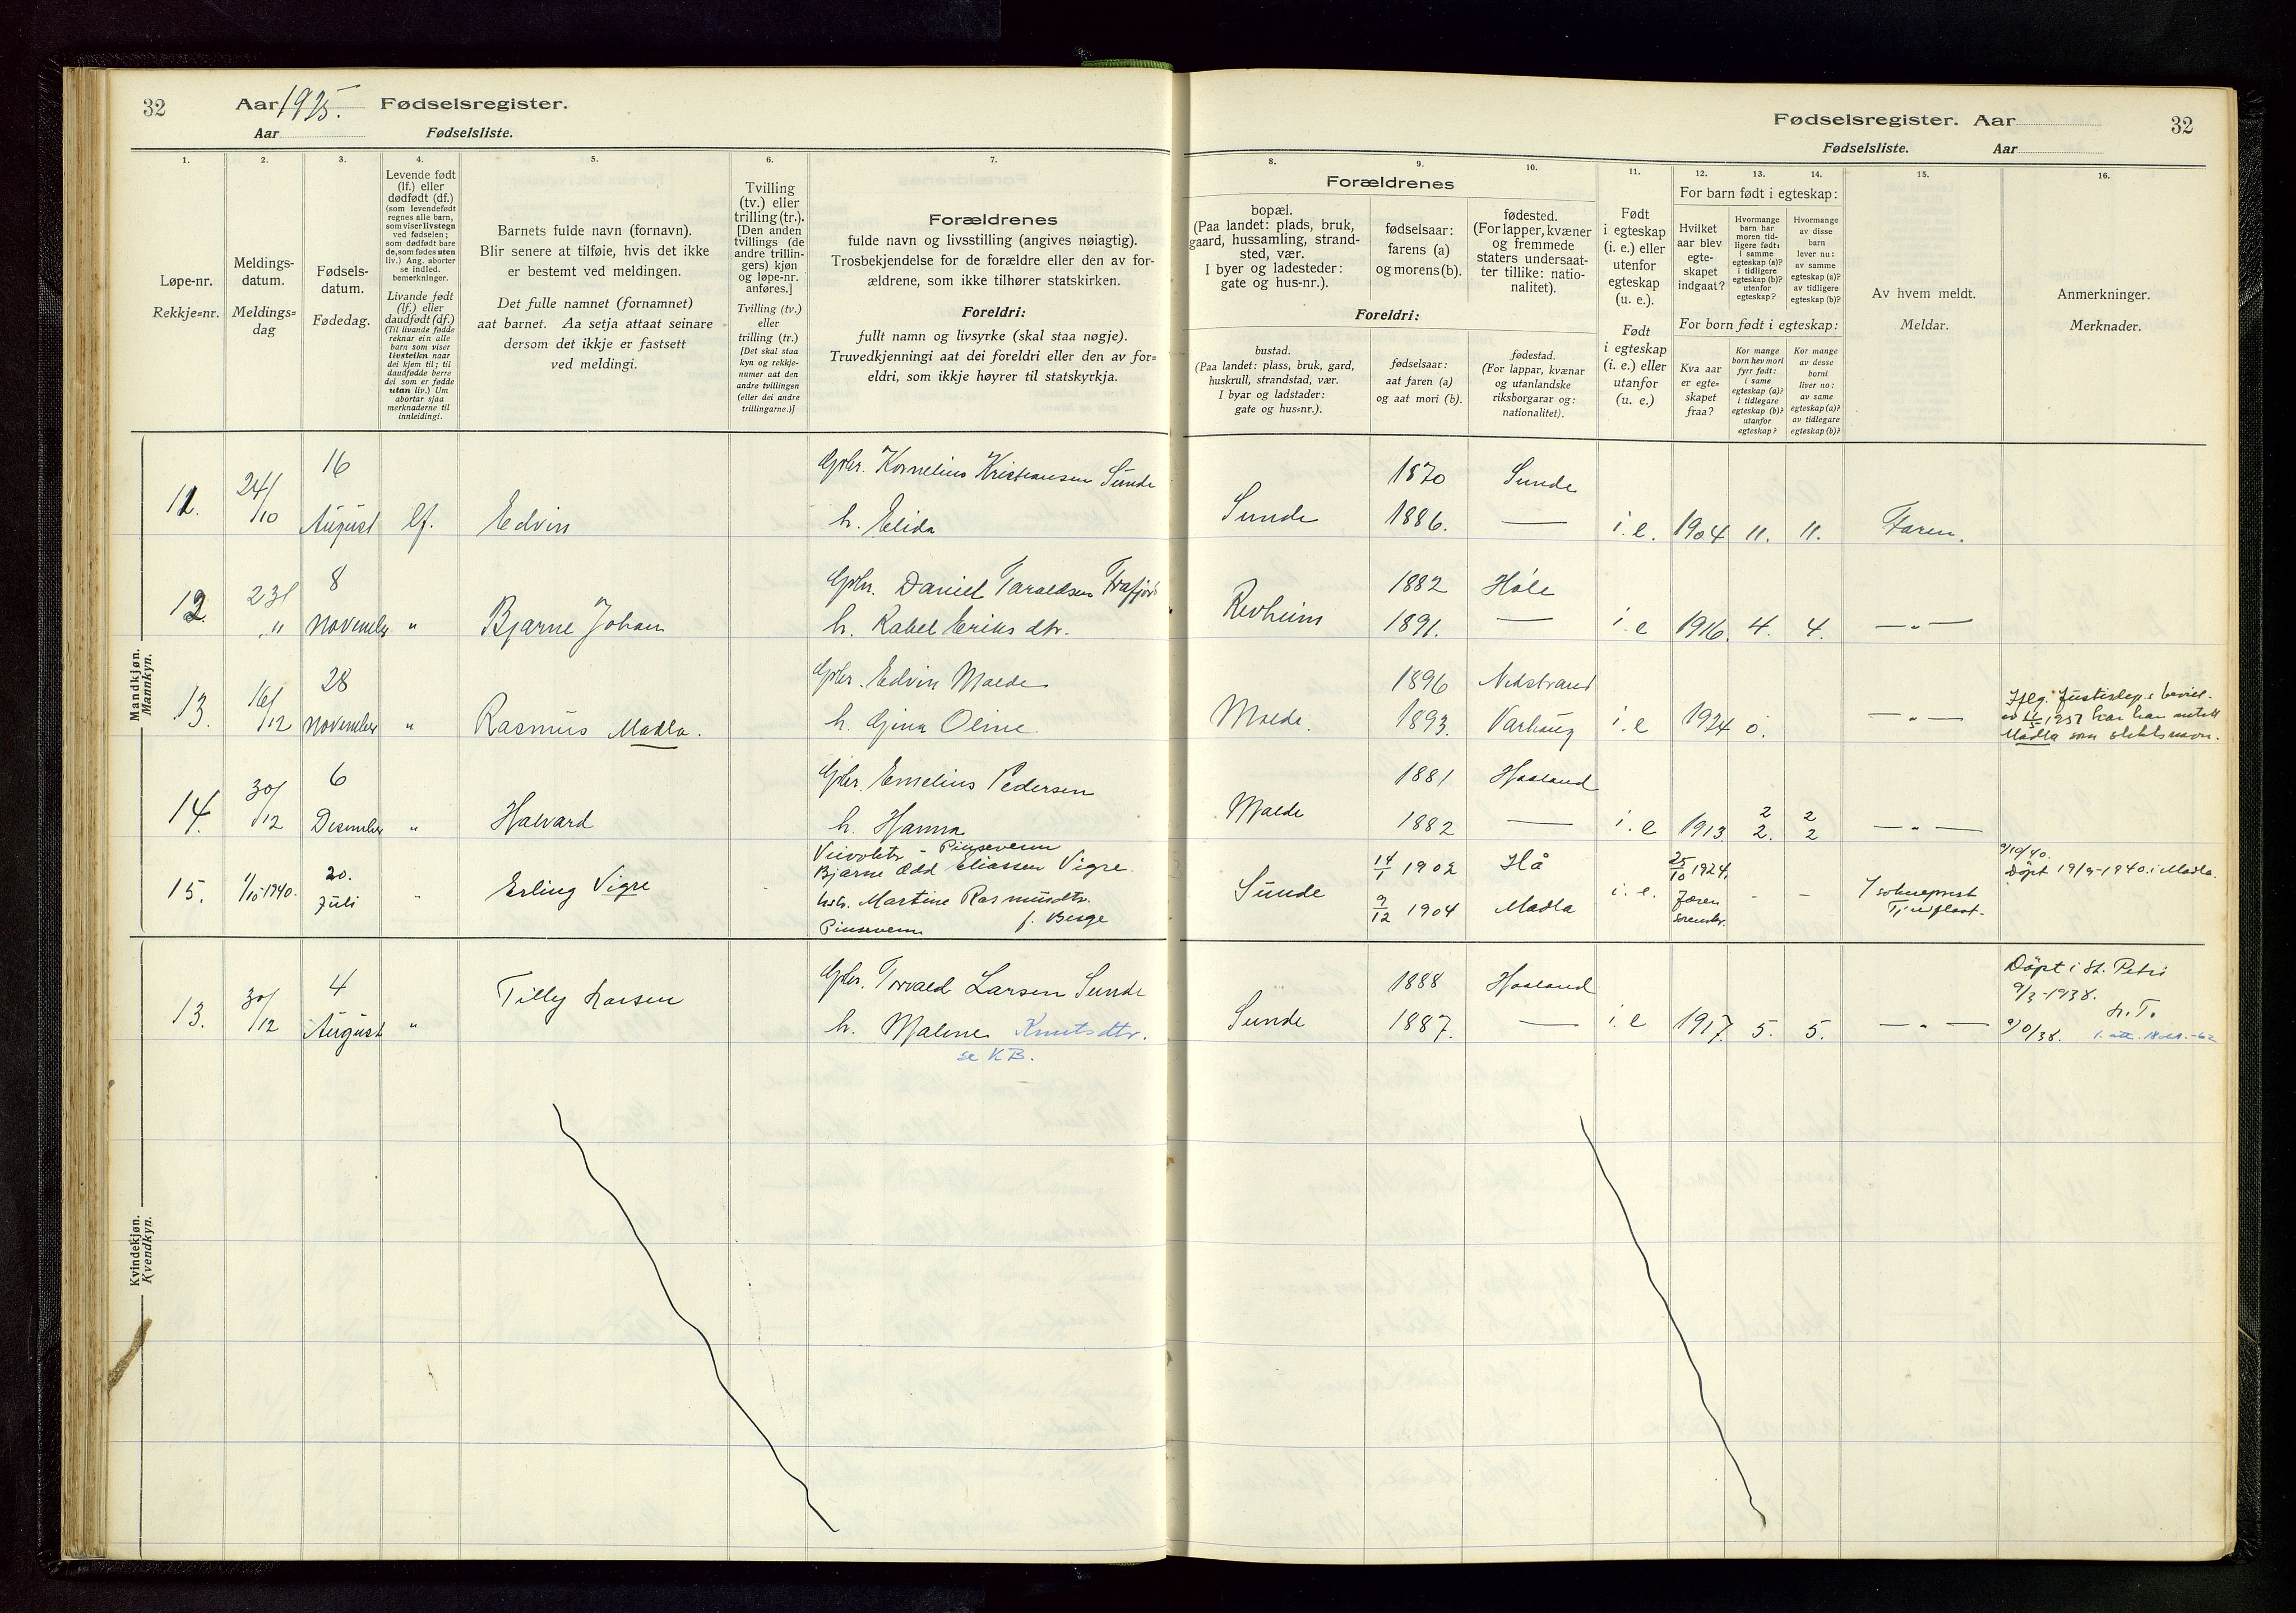 32 Aar 1925. Fødselsregister.
Aar Fødselsliste.
1. 2. 3. 4. 5. 6. 7.
Løpe-nr.
Rekkje=nr.
Meldings-
datum.
Meldings=
dag
Fødsels-
datum.
Fødedag.
Levende født
(lf.) eller
dødfødt (df.)
(som levendefødt
regnes alle barn,
som viser livstegn
ved fødselen;
som dødfødt bare
de, som fødes uten
liv.) Ang. aborter
se indled.
bemerkninger.
Livande født
(lf.) eller
daudfødt (df.)
(Til livande fødde
reknar ein alle
barn som viser
livsteikn naar
dei kjem til; til
daudfødde berre
dei som er fødde
utan liv.) Um
abortar sjaa
merknaderne til
innleidingi.
Barnets fulde navn (fornavn).
Blir senere at tilføie, hvis det ikke
er bestemt ved meldingen.
Det fulle namnet (fornamnet)
aat barnet. Aa setja attaat seinare
dersom det ikkje er fastsett
ved meldingi.
Tvilling
(tv.) eller
trilling (tr.).
[Den anden
tvillings (de
andre trillin-
gers) kjøn
og løpe-nr.
anføres.]
Tvilling (tv.)
eller
trilling (tr.)
[Det skal staa
kyn og rekkje-
numer aat den
andre tvillingen
(eller dei andre
trillingarne.)]
Forældrenes
fulde navn og livsstilling (angives nøiagtig).
Trosbekjendelse for de forældre eller den av for-
ældrene, som ikke tilhører statskirken.
Foreldri:
fullt namn og livsyrke (skal staa nøgje).
Truvedkjenningi aat dei foreldri eller den av for=
eldri, som ikkje høyrer til statskyrkja.
Mandkjøn.
Mannkyn.
11. 24/10 16 August lf. Edvin
Gbr. Kornelius Kristiansen Sunde
h. Elida
12. 23/" 8 November " Bjarne Johan
Gbr. Daniel Taraldsen Frafjord
h. Rakel Eriks dtr.
13. 16/12 28 November " Rasmus Madla.
Gbr. Edvin Malde
h. Gina Oline
14. 30/12 6 Desember " Halvard
Gbr. Emelius Pedersen
h. Hanna
15. 1/10-1940. 20. Juli " Erling Vigre
Pinsevenn
Bjarne Odd Eliassen Vigre
Martine Rasmusdtr.
Pinsevenn f. Berge
Kvindekjøn.
Kvendkyn.
13. 30/12 4 August " Tilly Larsen
Gbr. Torvald Larsen Sunde
h. Malene Knutsdtr.
se KB.
Fødselsregister. Aar 32
Fødselsliste. Aar
8. 9. 10. 11. 12. 13. 14. 15. 16.
Forældrenes
bopæl.
(Paa landet: plads, bruk,
gaard, hussamling, strand-
sted, vær.
I byer og ladesteder:
gate og hus-nr.).
fødselsaar:
farens (a)
og morens (b).
fødested.
(For lapper, kvæner
og fremmede
staters undersaat-
ter tillike: natio-
nalitet).
Foreldri:
bustad.
(Paa landet: plass, bruk, gard,
huskrull, strandstad, vær.
I byar og ladstader:
gate og hus=nr.).
fødselsaar:
aat faren (a)
og aat mori (b).
fødestad.
(For lappar, kvænar
og utanlandske
riksborgarar og:
nationalitet).
Født
i egteskap
(i. e.) eller
utenfor
egteskap
(u. e.).
Født
i egteskap
(i. e.) eller
utanfor
(u. e.)
For barn født i egteskap:
Hvilket
aar blev
egte-
skapet
indgaat?
Hvormange
barn har
moren tid-
ligere født:
i samme
egteskap (a)?
i tidligere
egteskap (b)?
utenfor
egteskap?
Hvormange
av disse
barn
lever nu:
av samme
egteskap (a)?
av tidligere
egteskap (b)?
For born født i egteskap:
Kva aar
er egte=
skapet
fraa?
Kor mange
born hev mori
fyrr født:
i same
egteskap (a)?
i tidlegare
egteskap (b)?
utanfor
egteskap?
Kor mange
av desse
borni
liver no:
av same
egteskap (a)?
av tidlegare
egteskap (b)?
Av hvem meldt.
Meldar.
Anmerkninger.
Merknader.
Sunde 1870 Sunde
1886. — i. e. 1904 11. 11. Faren.
Revheim 1882 Høle
1891. — i. e 1916. 4. 4. — " —
Malde. 1896 Nedstrand
1893. Varhaug i. e 1924 0. — " —
Ifølg. Justisdep.s bevill.
1957 har han antatt
Madla som slektsnavn.
Malde 1881 Haaland
1882 — i. e 1913. 2 2
2. 2 — " —
Sunde 14/1 1902 Hå
9/12 1904 Madla i. e. 25/10 1924.
Jæren
sorenskr. - - Sokneprest
Tjentflaat.
9/10/40.
Døpt 19/9-1940 i Madla.
Sunde 1888 Haaland
1887. — i. e 1917. 5. 5. — " —
Døpt i St. Petri
9/3-1938.
h. T.